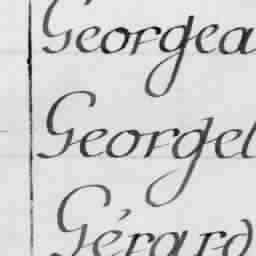 Georgea
Georgel
Gérard